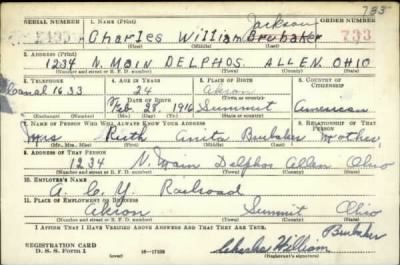 733
SERIAL NUMBER 1. NAME (Print) Jackson ORDER NUMBER
Charles William Brubaker 733
(First) (Middle) (Last)
2. ADDRESS (Print)
1234 N. MAIN DELPHOS ALLEN OHIO
(Number and street or R. F. D. number) (Town) (County) (State)
3. TELEPHONE 4. AGE IN YEARS 5. PLACE OF BIRTH 6. COUNTRY OF CITIZENSHIP
24 Akron
Canal 1633 DATE OF BIRTH (Town or county)
Feb 28, 1916 Summit American
(Mo.) (Day) (Yr.) (State or country)
7. NAME OF PERSON WHO WILL ALWAYS KNOW YOUR ADDRESS 8. RELATIONSHIP OF THAT PERSON
Mrs Ruth Anita Brubaker Mother
(Mr., Mrs., Miss) (First) (Middle) (Last)
9. ADDRESS OF THAT PERSON
1234 N. Main Delphos Allen Ohio
(Number and street or R. F. D. number) (Town) (County) (State)
10. EMPLOYER'S NAME
A. C. Y. Railroad
11. PLACE OF EMPLOYMENT OR BUSINESS
Akron Summit Ohio
(Number and street or R. F. D. number) (Town) (County) (State)
I AFFIRM THAT I HAVE VERIFIED ABOVE ANSWERS AND THAT THEY ARE TRUE.
Brubaker
REGISTRATION CARD Charles William
D. S. S. Form 1 16—17105 (Registrant's signature)
(over)